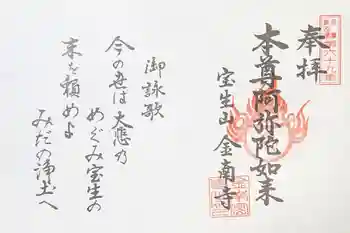 奉拝
本尊阿弥陀如来
宝生山 金南寺
御詠歌
今の世は 大悲の
めぐみ宝生の
末を頼めよ
みだの浄土へ